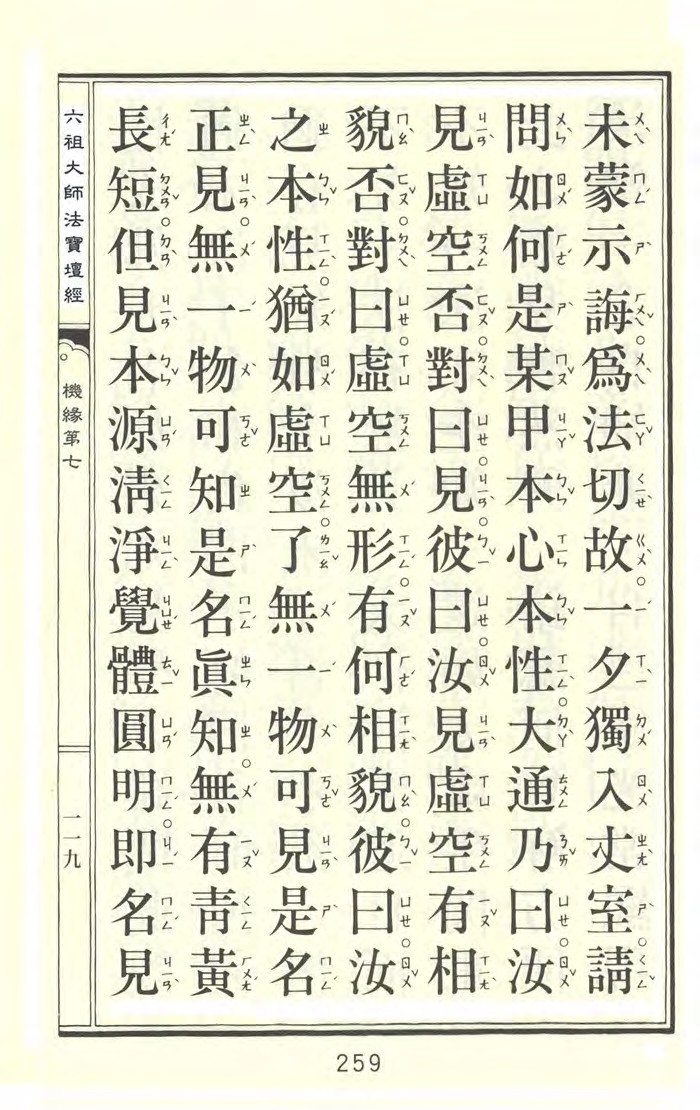 未蒙示誨。為法切故。一夕獨入丈室。請
問如何是某甲本心本性。大通乃曰。汝
見虛空否。對曰。見。彼曰。汝見虛空有相
貌否。對曰。虛空無形。有何相貌。彼曰。汝
之本性。猶如虛空。了無一物可見。是名
正見。無一物可知。是名眞知。無有青黃
長短。但見本源清淨。覺體圓明。即名見
六祖大師法寶壇經
機緣第七
一一九
259